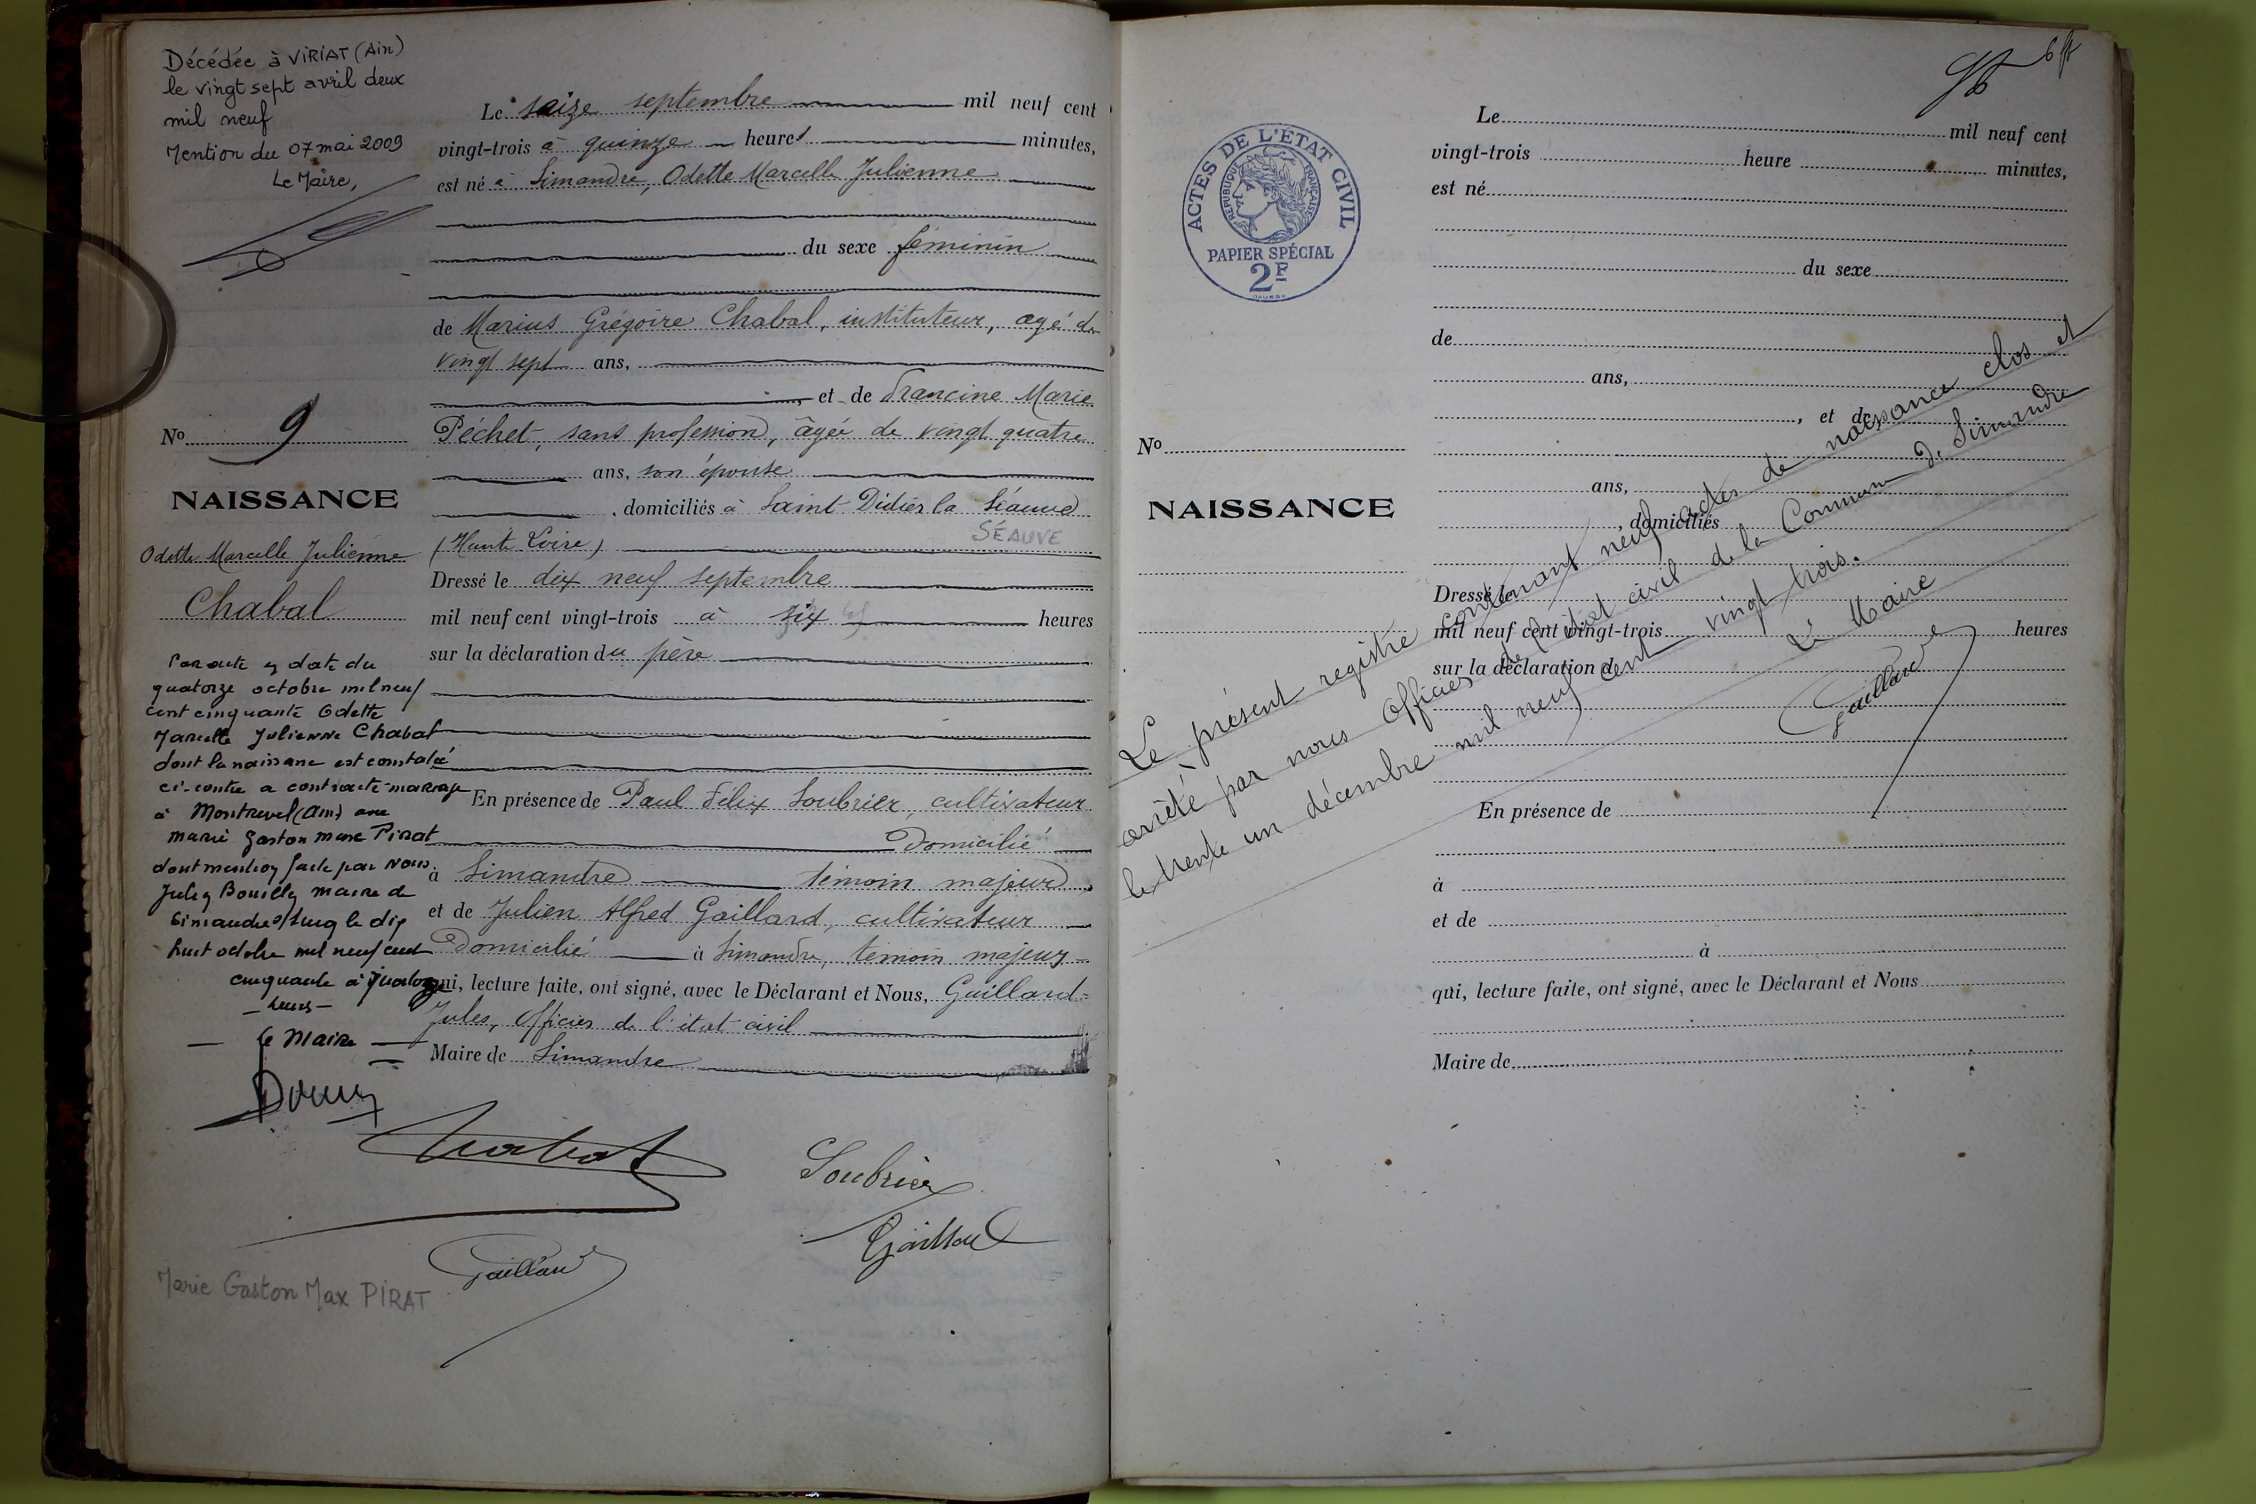 Décédée à VIRIAT (Ain)
le vingt sept avril deux
mil neuf
Mention du 07 mai 2009
Le Maire,
Le seize septembre mil neuf cent
vingt-trois à quinze heures minutes,
est né à Simandre, Odette Marcelle Julienne
du sexe féminin
de Marius Grégoire Chabal, instituteur, agé de
vingt sept ans,
, et de Francine Marie
Péchet, sans profession, âgée de vingt quatre
ans, son épouse
, domiciliés à Saint Didier la Séauve
SÉAUVE
(Haute Loire)
Dressé le dix neuf septembre
mil neuf cent vingt-trois à six heures
sur la déclaration du père
En présence de Paul Félix Soubrier, cultivateur
Domicilié
à Simandre témoin majeur
et de Julien Alfred Gaillard, cultivateur
Domicilié à Simandre, témoin majeur
qui, lecture faite, ont signé, avec le Déclarant et Nous, Gaillard
Jules, Officier de l'état civil
Maire de Simandre
No 9
NAISSANCE
Odette Marcelle Julienne
Chabal
Par acte en date du
quatorze octobre mil neuf
cent cinquante Odette
Marcelle Julienne Chabal
dont la naissance est constatée
ci-contre a contracté mariage
à Montrevel (Ain) avec
Marie Gaston Max Pirat
dont mention faite par Nous
Bouilly maire de
Simandre s/ le dix
huit octobre mil neuf cent
cinquante à quatorze
heures
Le Maire
Chabal
Soubrier
Gaillard
Gaillard
Marie Gaston Max PIRAT
6
ACTES DE L'ÉTAT CIVIL
RÉPUBLIQUE FRANÇAISE
PAPIER SPÉCIAL
2F
No
NAISSANCE
Le mil neuf cent
vingt-trois heure minutes,
est né
du sexe
de
ans,
, et de
ans,
, domiciliés
Dressé le
mil neuf cent vingt-trois heures
sur la déclaration d
En présence de
à
et de
à
qui, lecture faite, ont signé, avec le Déclarant et Nous
Maire de
Le présent registre contenant neuf actes de naissance clos et
arrêté par nous Officier de l'état civil de la Commune de Simandre
le trente un décembre mil neuf cent vingt trois.
Le Maire
Gaillard